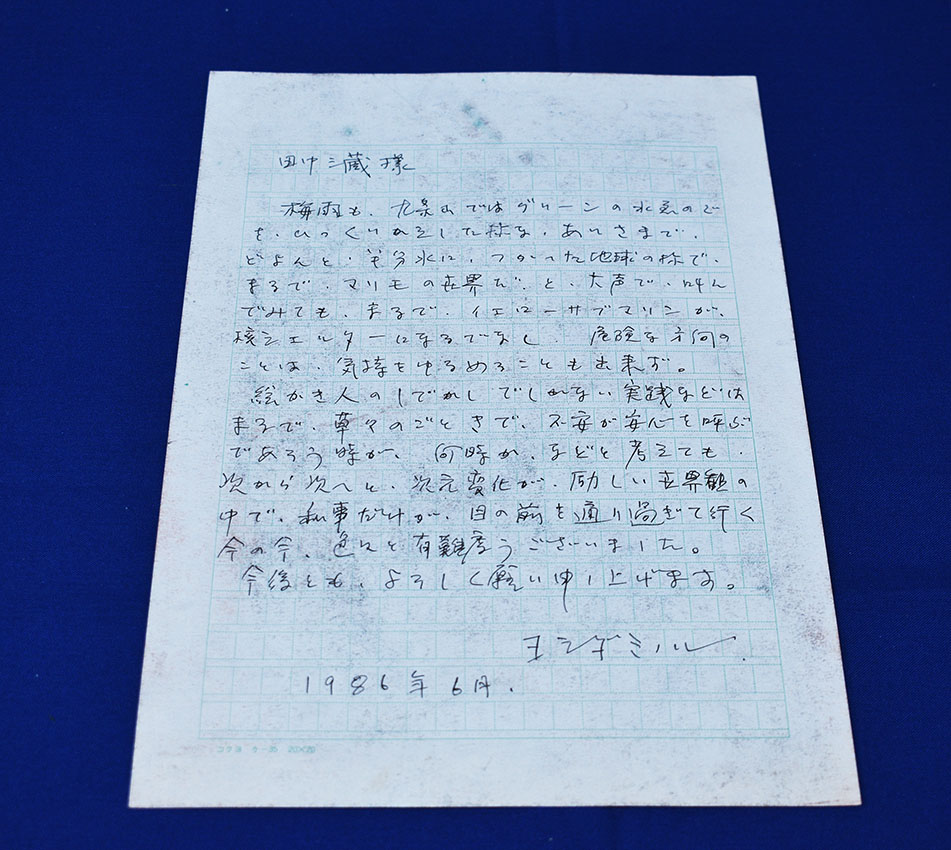 田中三蔵様
梅雨も、九条山ではグリーンの水気ので
を、ひっくりかえした様な、ありさまで、
どよんと、半分水に、つかった地球の様で、
まるで、マリモの世界だ、と、大声で、叫ん
でみても、まるで、イエローサブマリンが、
核シェルターになるでなし、危険な方向の
ことは、気持をゆるめることも出来ず。
絵かき人のしでかしでしかない実践などは
まるで、草々のごときで、不安が安心を呼ぶ
であろう時が、何時か、などと考えても、
次から次へと、次元変化が、励しい世界観の
中で、私事だけが、目の前を通り過ぎて行く
今の今、色々と有難度うございました。
今後とも、よろしく願い申し上げます。
ヨシダミノル
1986年6月.
コクヨ ケー35 20×20